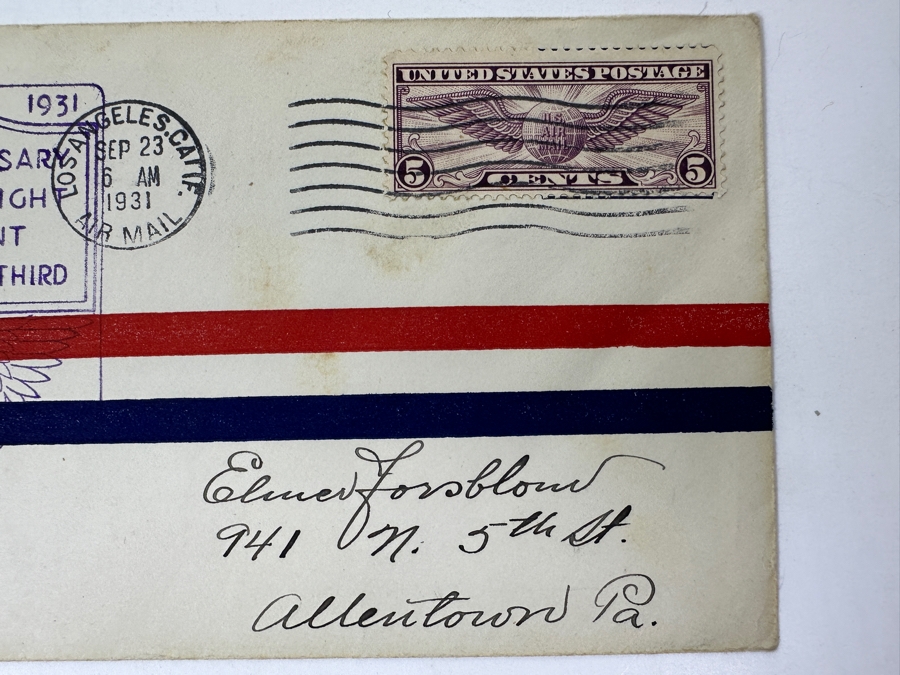 1931
SARY
IGHT
NT
THIRD
LOS ANGELES, CALIF.
SEP 23
6 AM
1931
AIR MAIL
UNITED STATES POSTAGE
U.S.
AIR
MAIL
5 CENTS 5
Elmer Forsblom
941 N. 5th St.
Allentown Pa.